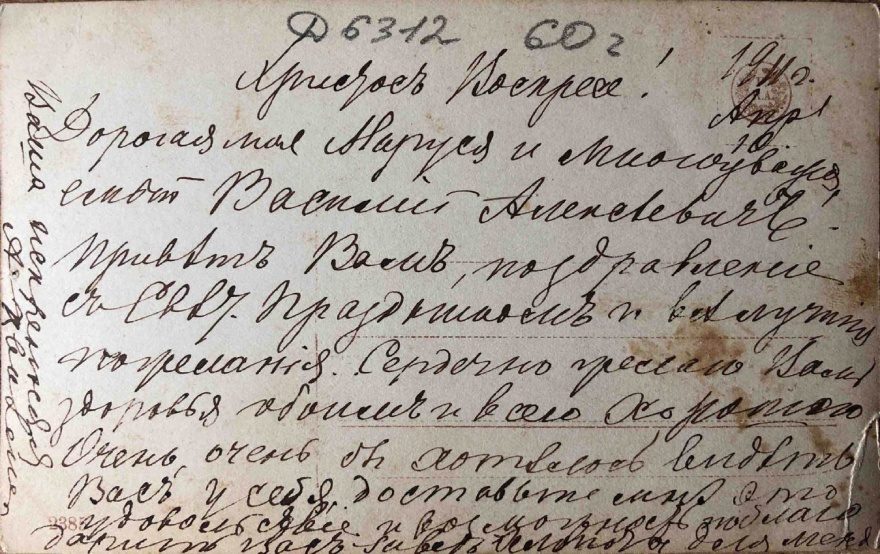 Д 6312 60 г
Христосъ Воскресе!
1911 г.
Апр
10
Дорогая моя Маруся и многоуважа
емый Василий Алексеевичъ
Привѣтъ Вамъ, поздравленіе
съ Свѣт. Праздникомъ и всѣ лучшія
пожеланія. Сердечно желаю Вамъ
здоровья обоимъ и всего хорошого
Очень, очень бы хотѣлось видѣть
Васъ у себя, доставьте мнѣ это
удовольствіе и возможность поблаго
дарить Васъ для меня
Ваша искренняя
2385